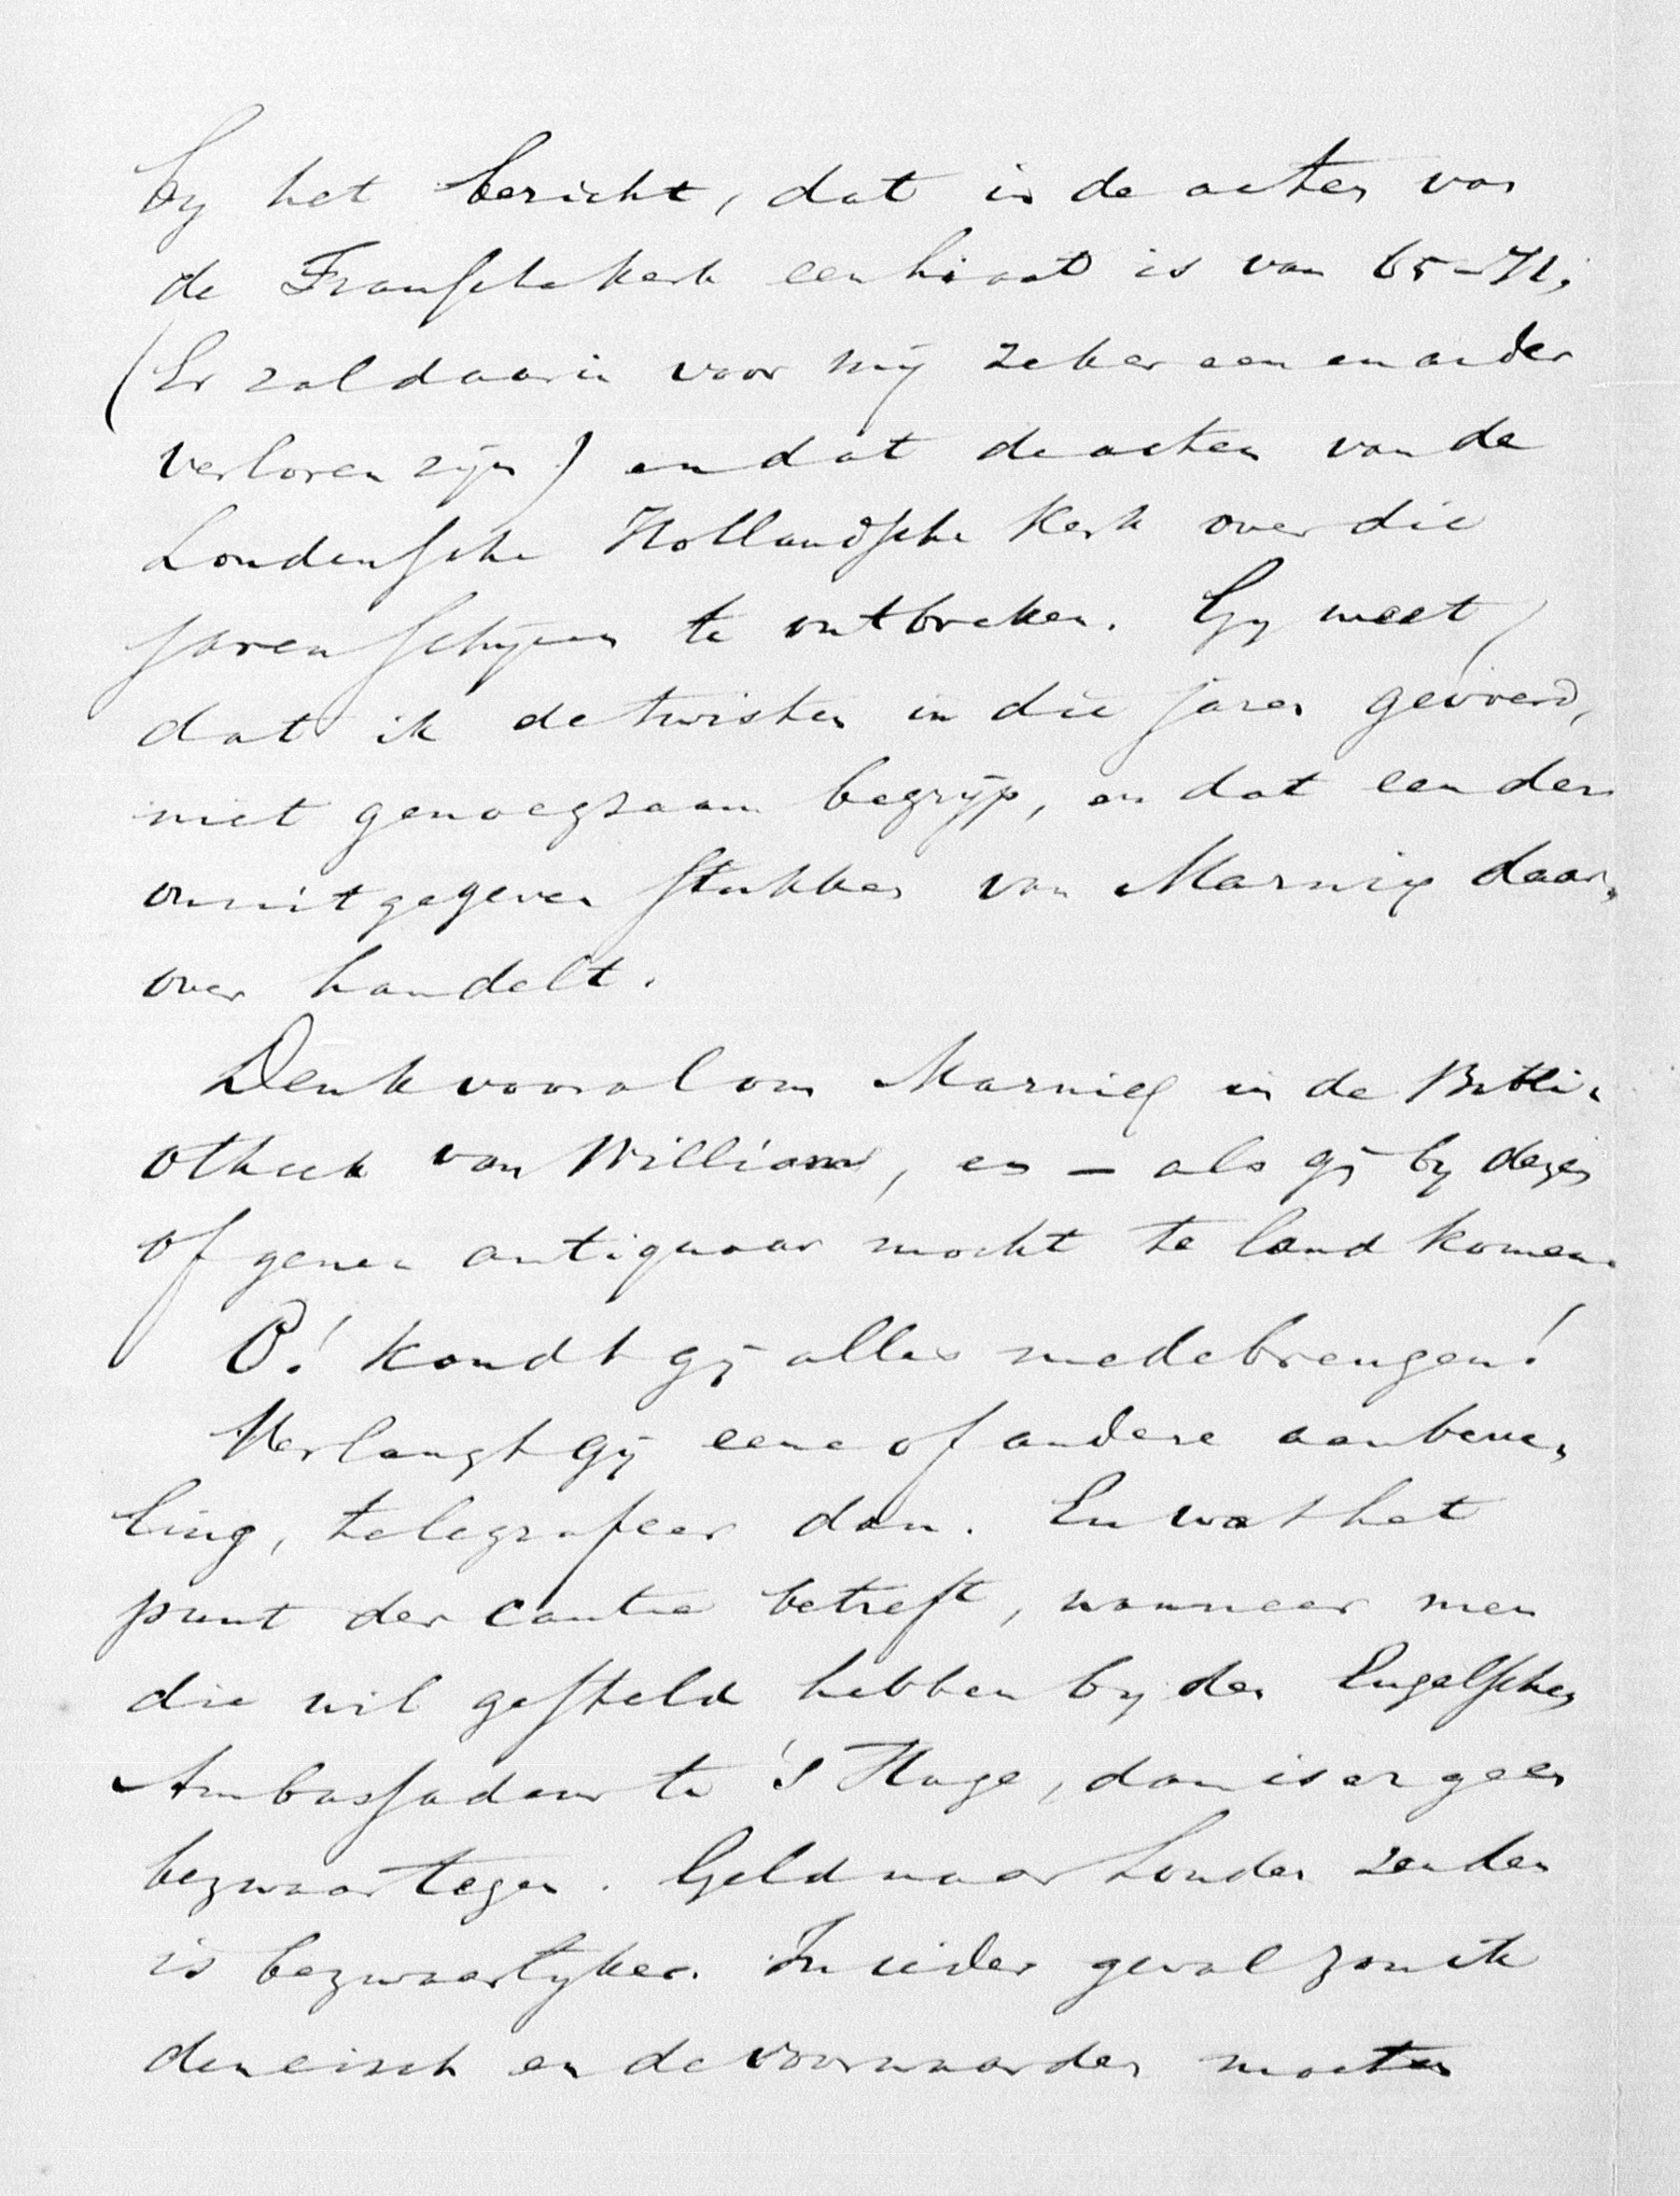 by het bericht, dat in de acten van
de Fransche kerk een hiaat is van 65-71;
(Er zal daarin voor mij zeker een en ander
verloren zijn) en dat de acten van de
Londensche Hollandsche Kerk over die
jaren schijnen te ontbreken. Gy weet,
dat ik de twisten in die jaren gevoerd,
niet genoegzaam begrijp, en dat een der
onuitgegeven stukken van Marnix daar-
over handelt.
Denk vooral om Marnix in de Bibli-
otheek van Williams, en — als gij by dezen
of genen antiquaar mocht te land komen.
O! kondt gij alles medebrengen!
Verlangt gij eene of andere aanbeve-
ling, telegrafeer dan. En wat het
punt der cautie betreft, wanneer men
die wil gesteld hebben by den Engelschen
Ambassadeur te 's Hage, dan is er geen
bezwaar tegen. Geld naar Londen zenden
is bezwaarlyker. In ieder geval zou ik
den eisch en de voorwaarden moeten